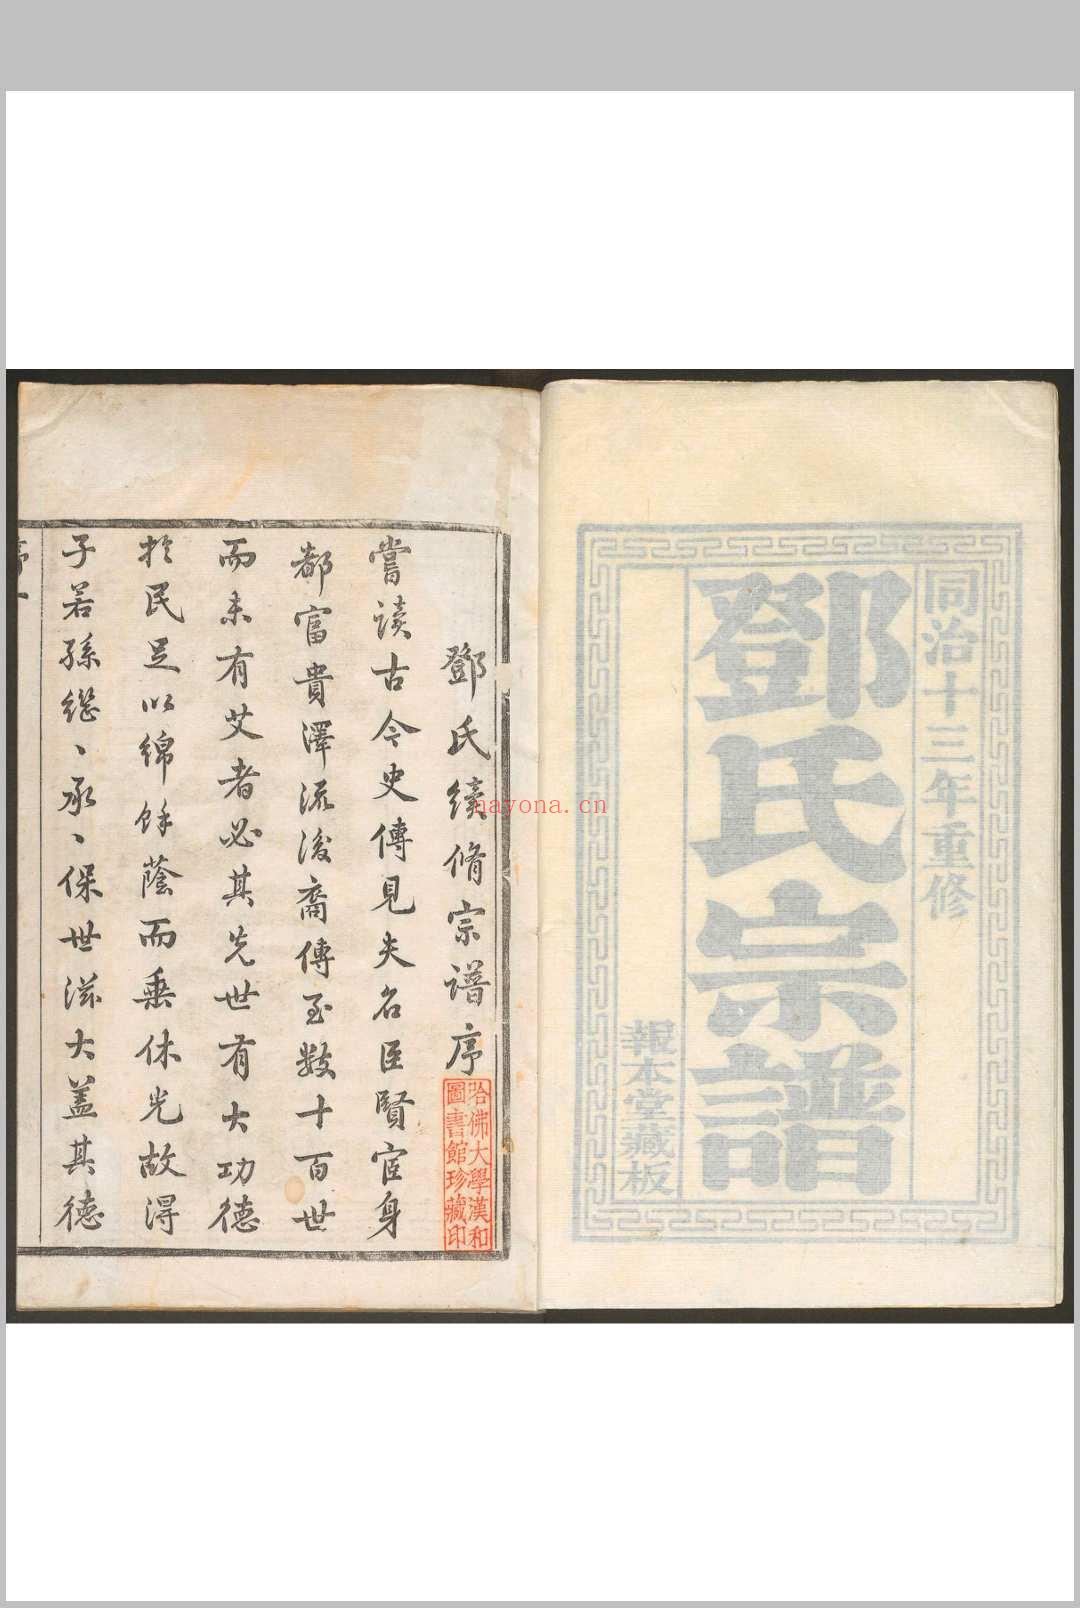 同治十三年重修
鄧氏宗譜
報本堂藏板
鄧氏續脩宗譜序
嘗讀古今史傳見夫名臣賢宦身
都富貴澤流後裔傳至數十百世
而未有艾者必其先世有大功德
於民足以綿餘蔭而垂休光故得
子若孫繼、承、保世滋大蓋其德
序 一
哈佛大學漢和
圖書館珍藏印
nayona.cn